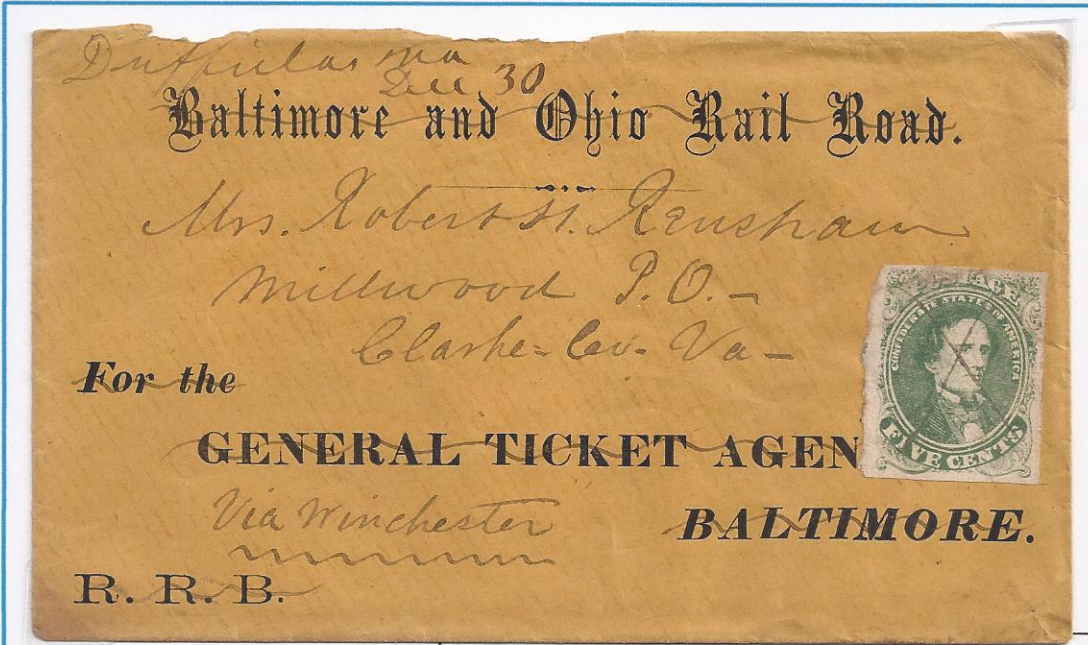 Duffields Va
Dec 30
Baltimore and Ohio Rail Road.
Mrs. Robert H. Renshaw
Millwood P.O. -
Clarke - Cou - Va -
For the
GENERAL TICKET AGEN
Via Winchester
BALTIMORE.
R. R. B.
CONFEDERATE STATES OF AMERICA
FIVE CENTS